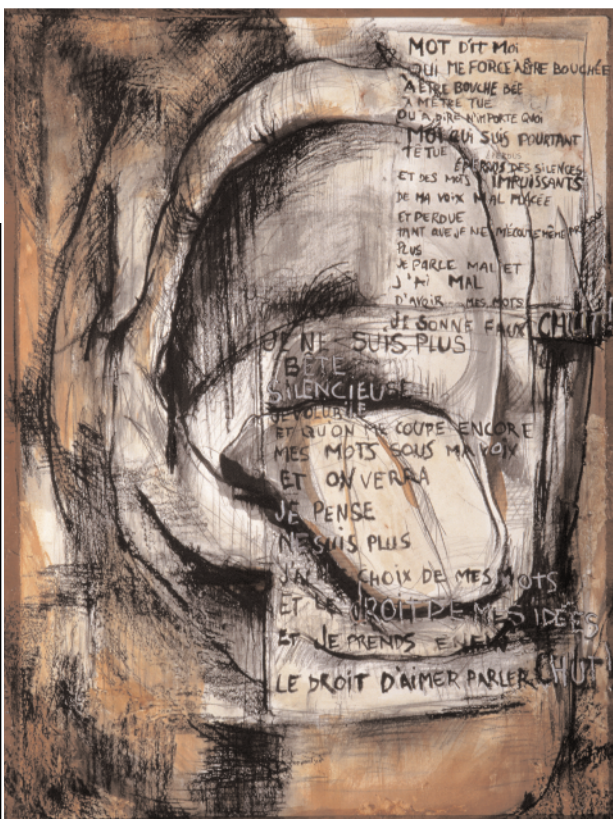 MOT DIT MOI
QUI ME FORCE A ÊTRE BOUCHÉE
A ÊTRE BOUCHE BÉE
A METRE TUE
OU A DIRE N'IMPORTE QUOI
MOI QUI SUIS POURTANT
TÊTUE
ÉPERDUS DES SILENCES
ET DES MOTS IMPUISSANTS
DE MA VOIX MAL PLACÉE
ET PERDUE
TANT QUE JE NE M'ÉCOUTE MÊME
PLUS
JE PARLE MAL ET
J'AI MAL
D'AVOIR MES MOTS
JE SONNE FAUX CHUT
JE NE SUIS PLUS
BÊTE
SILENCIEUSE
JE VOLUBILE
ET QU'ON ME COUPE ENCORE
MES MOTS SOUS MA VOIX
ET ON VERRA
JE PENSE
N'E SUIS PLUS
J'AI LE CHOIX DE MES MOTS
ET LE DROIT DE MES IDÉES
ET JE PRENDS ENFIN
LE DROIT D'AIMER PARLER CHUT